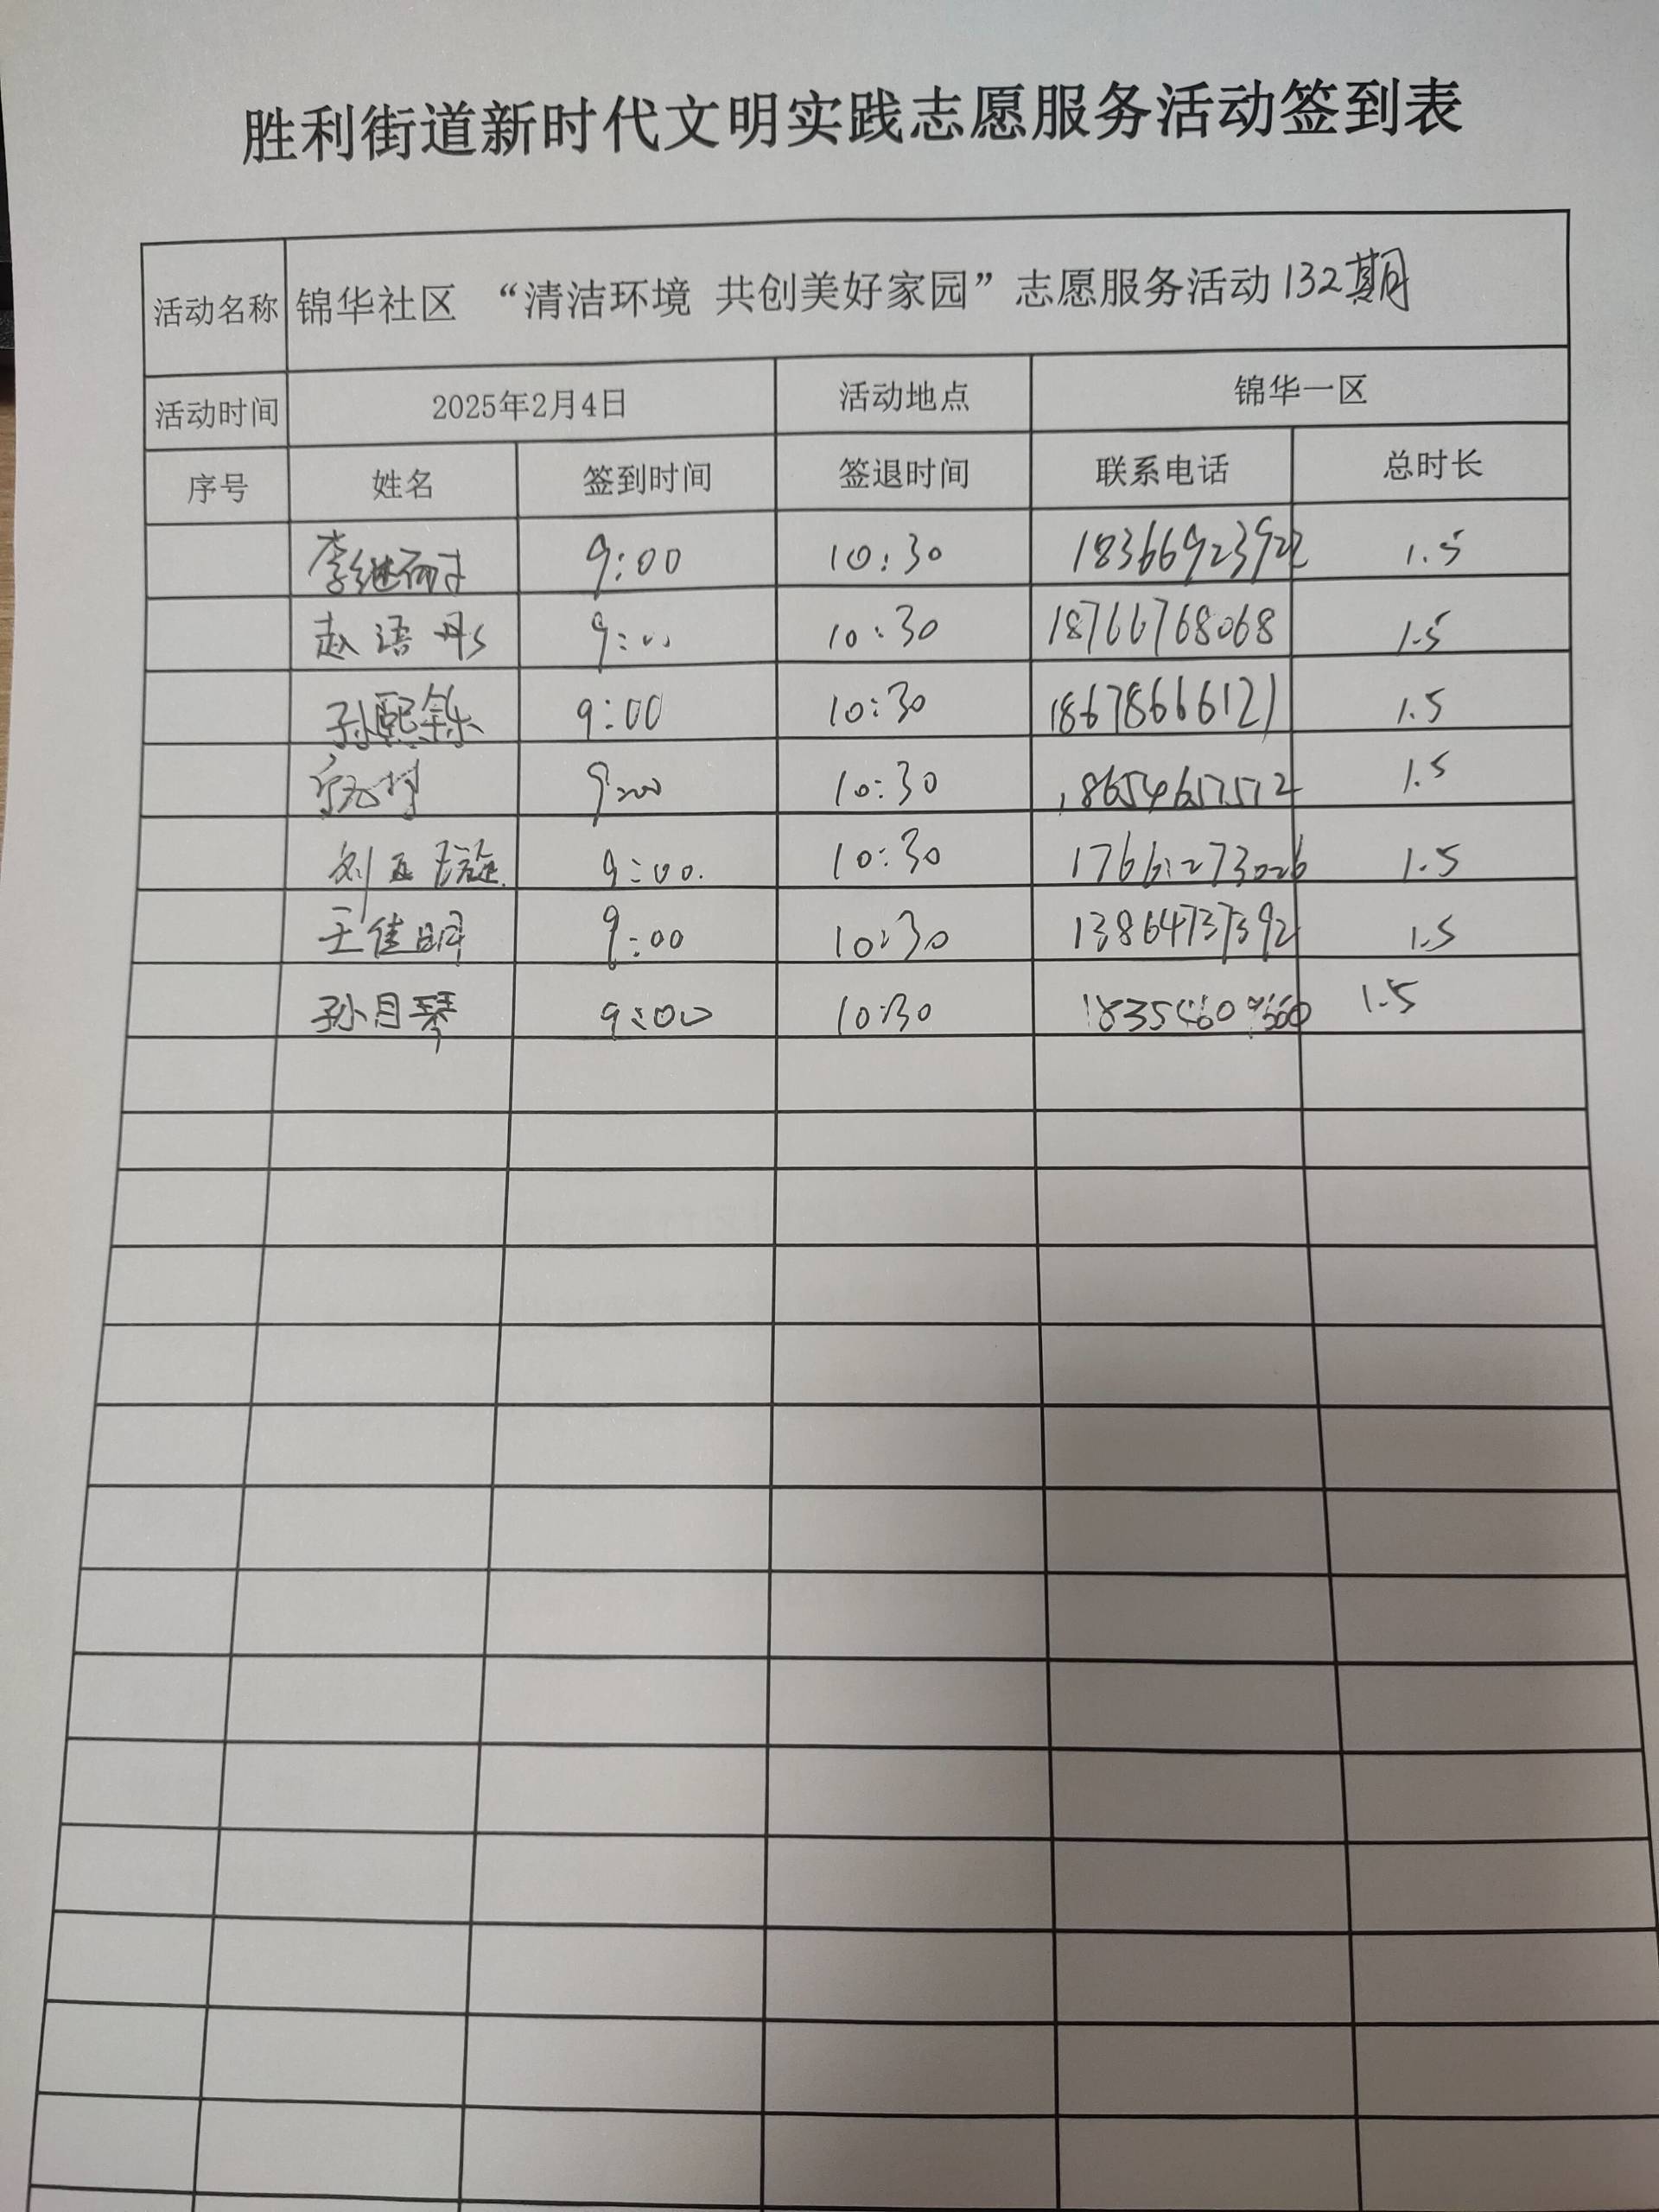 胜利街道新时代文明实践志愿服务活动签到表
活动名称 锦华社区 “清洁环境 共创美好家园”志愿服务活动 132期
活动时间 2025年2月4日 活动地点 锦华一区
序号 姓名 签到时间 签退时间 联系电话 总时长
9:00 10:30 1.5
赵语彤 9:00 10:30 18766768068 1.5
孙熙铄 9:00 10:30 18678666121 1.5
9:00 10:30 1.5
9:00. 10:30 1.5
王佳明 9:00 10:30 13864737592 1.5
孙月琴 9:00 10:30 1.5